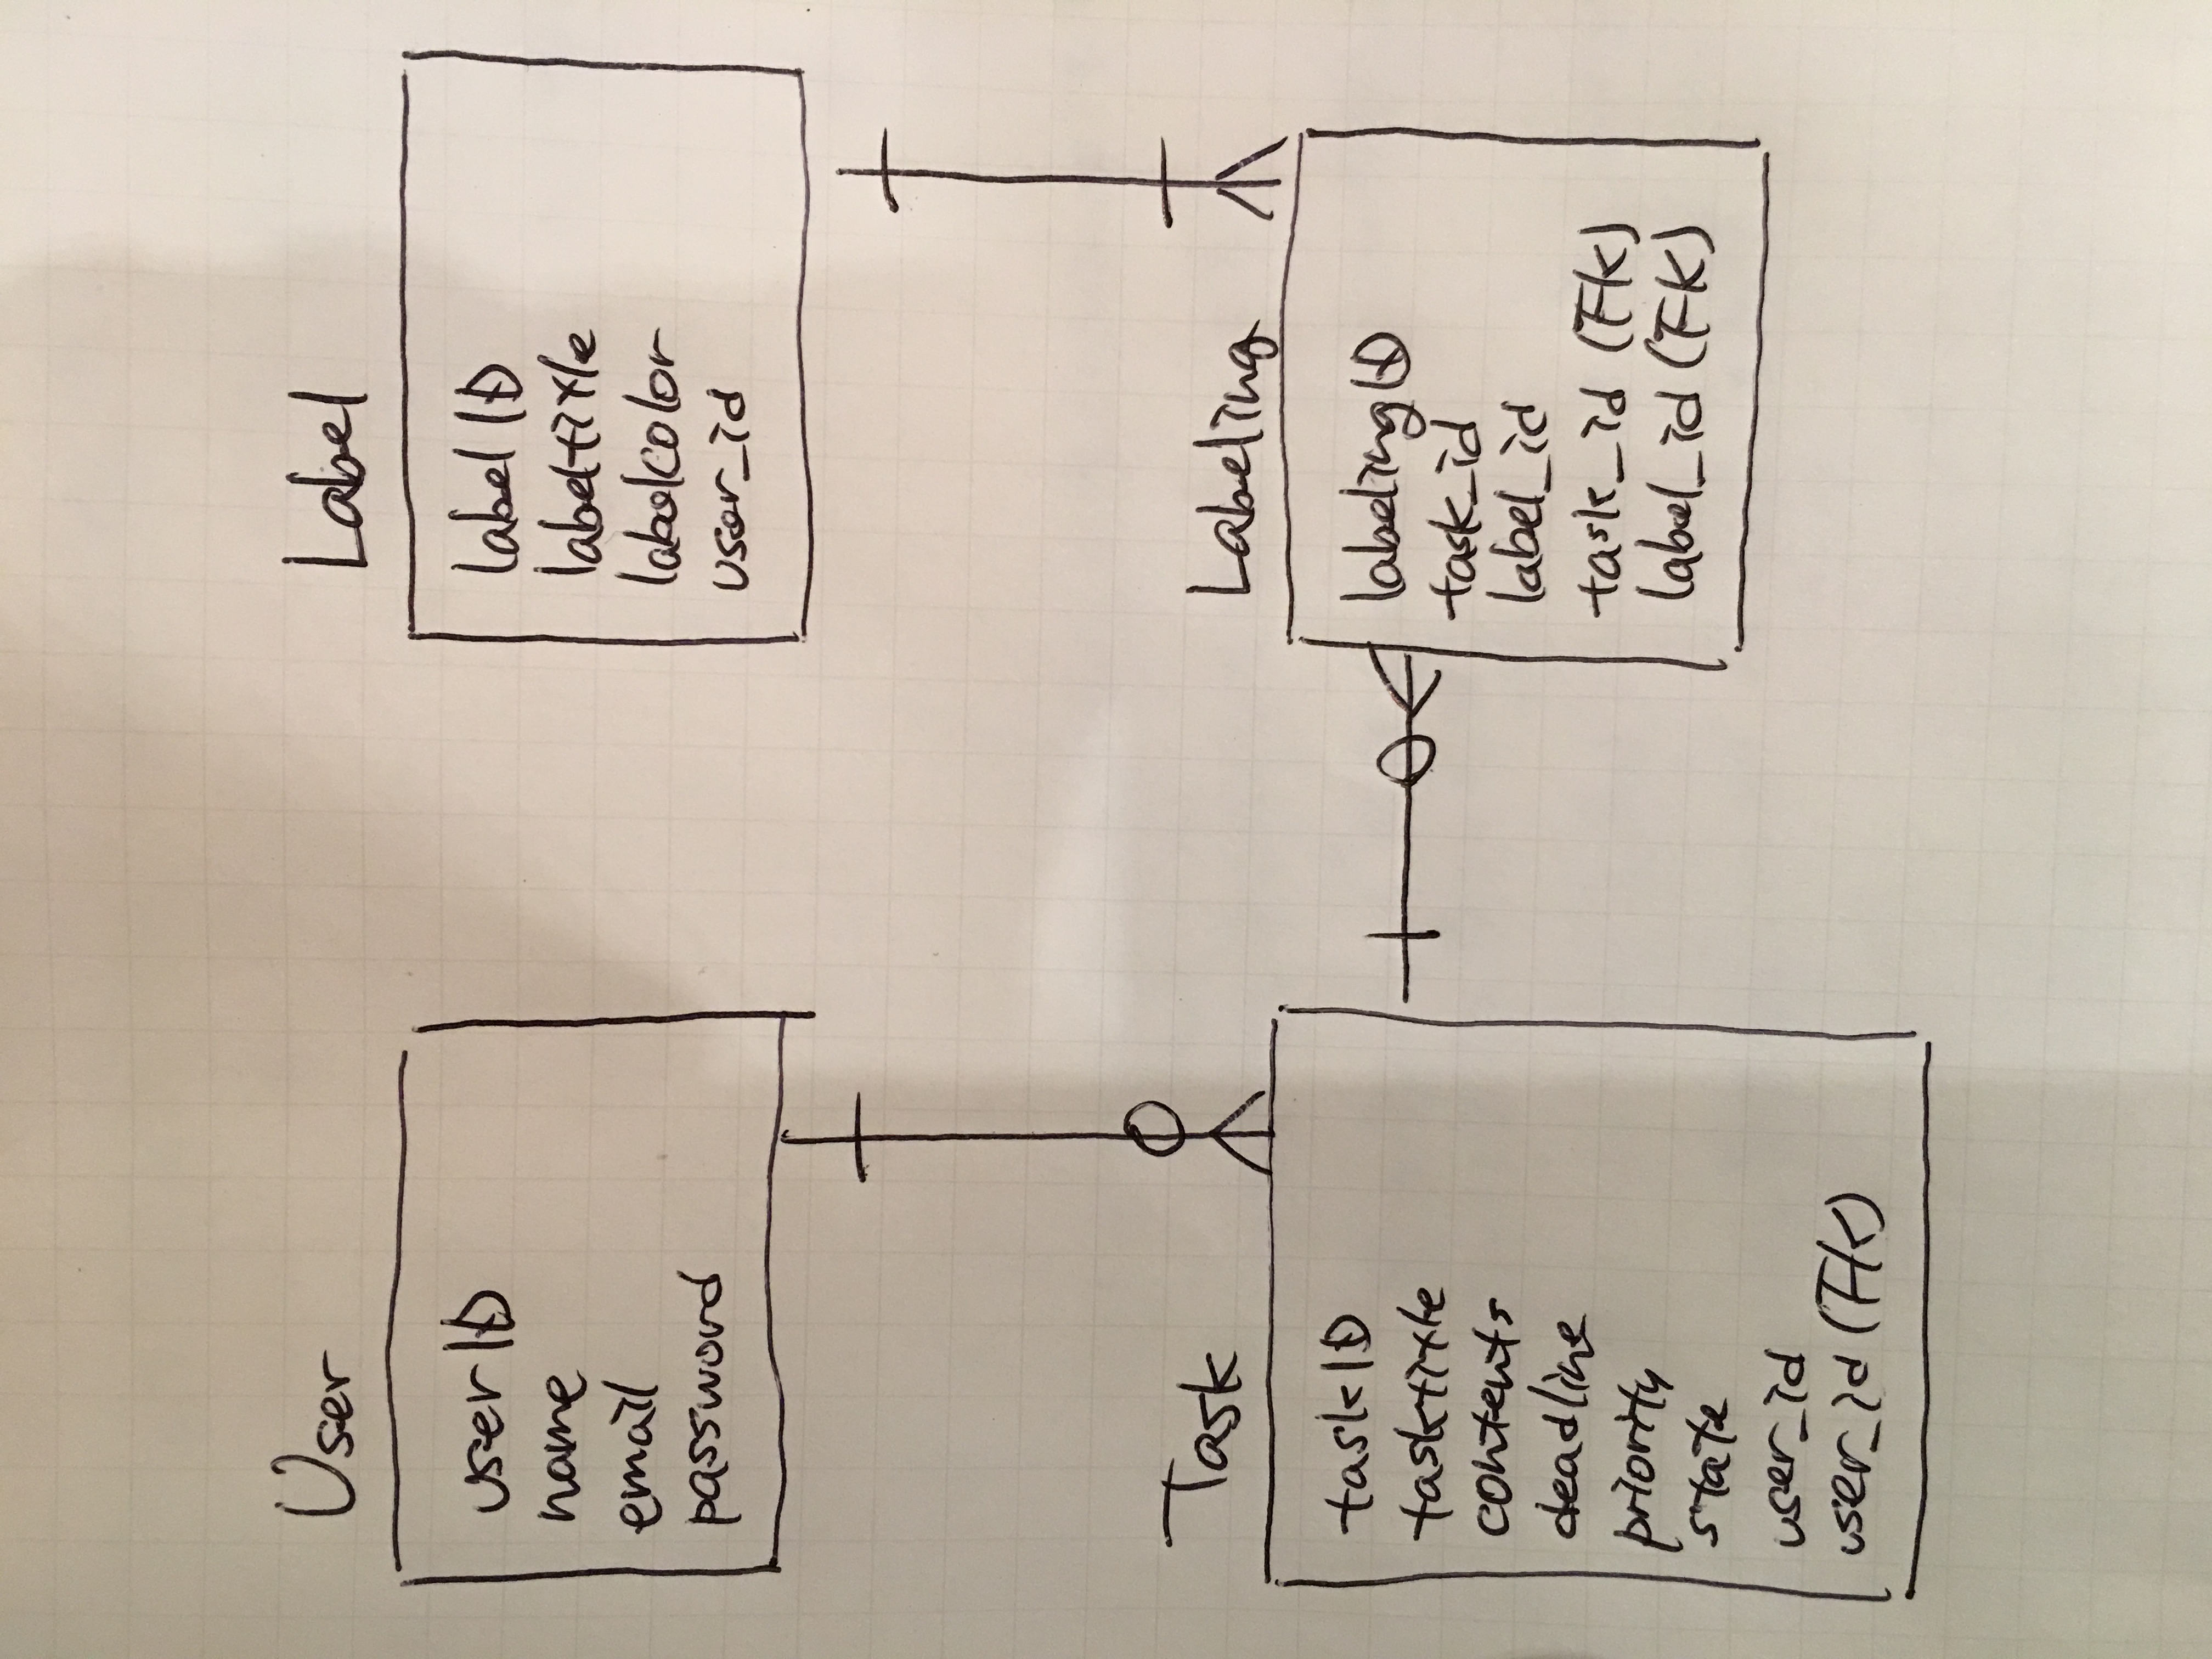 User
userID
name
email
password
Label
labelID
labeltitle
labelcolor
user_id
Task
taskID
tasktitle
contents
deadline
priority
state
user_id
user_id (FK)
Labeling
labelingID
task_id
label_id
task_id (FK)
label_id (FK)